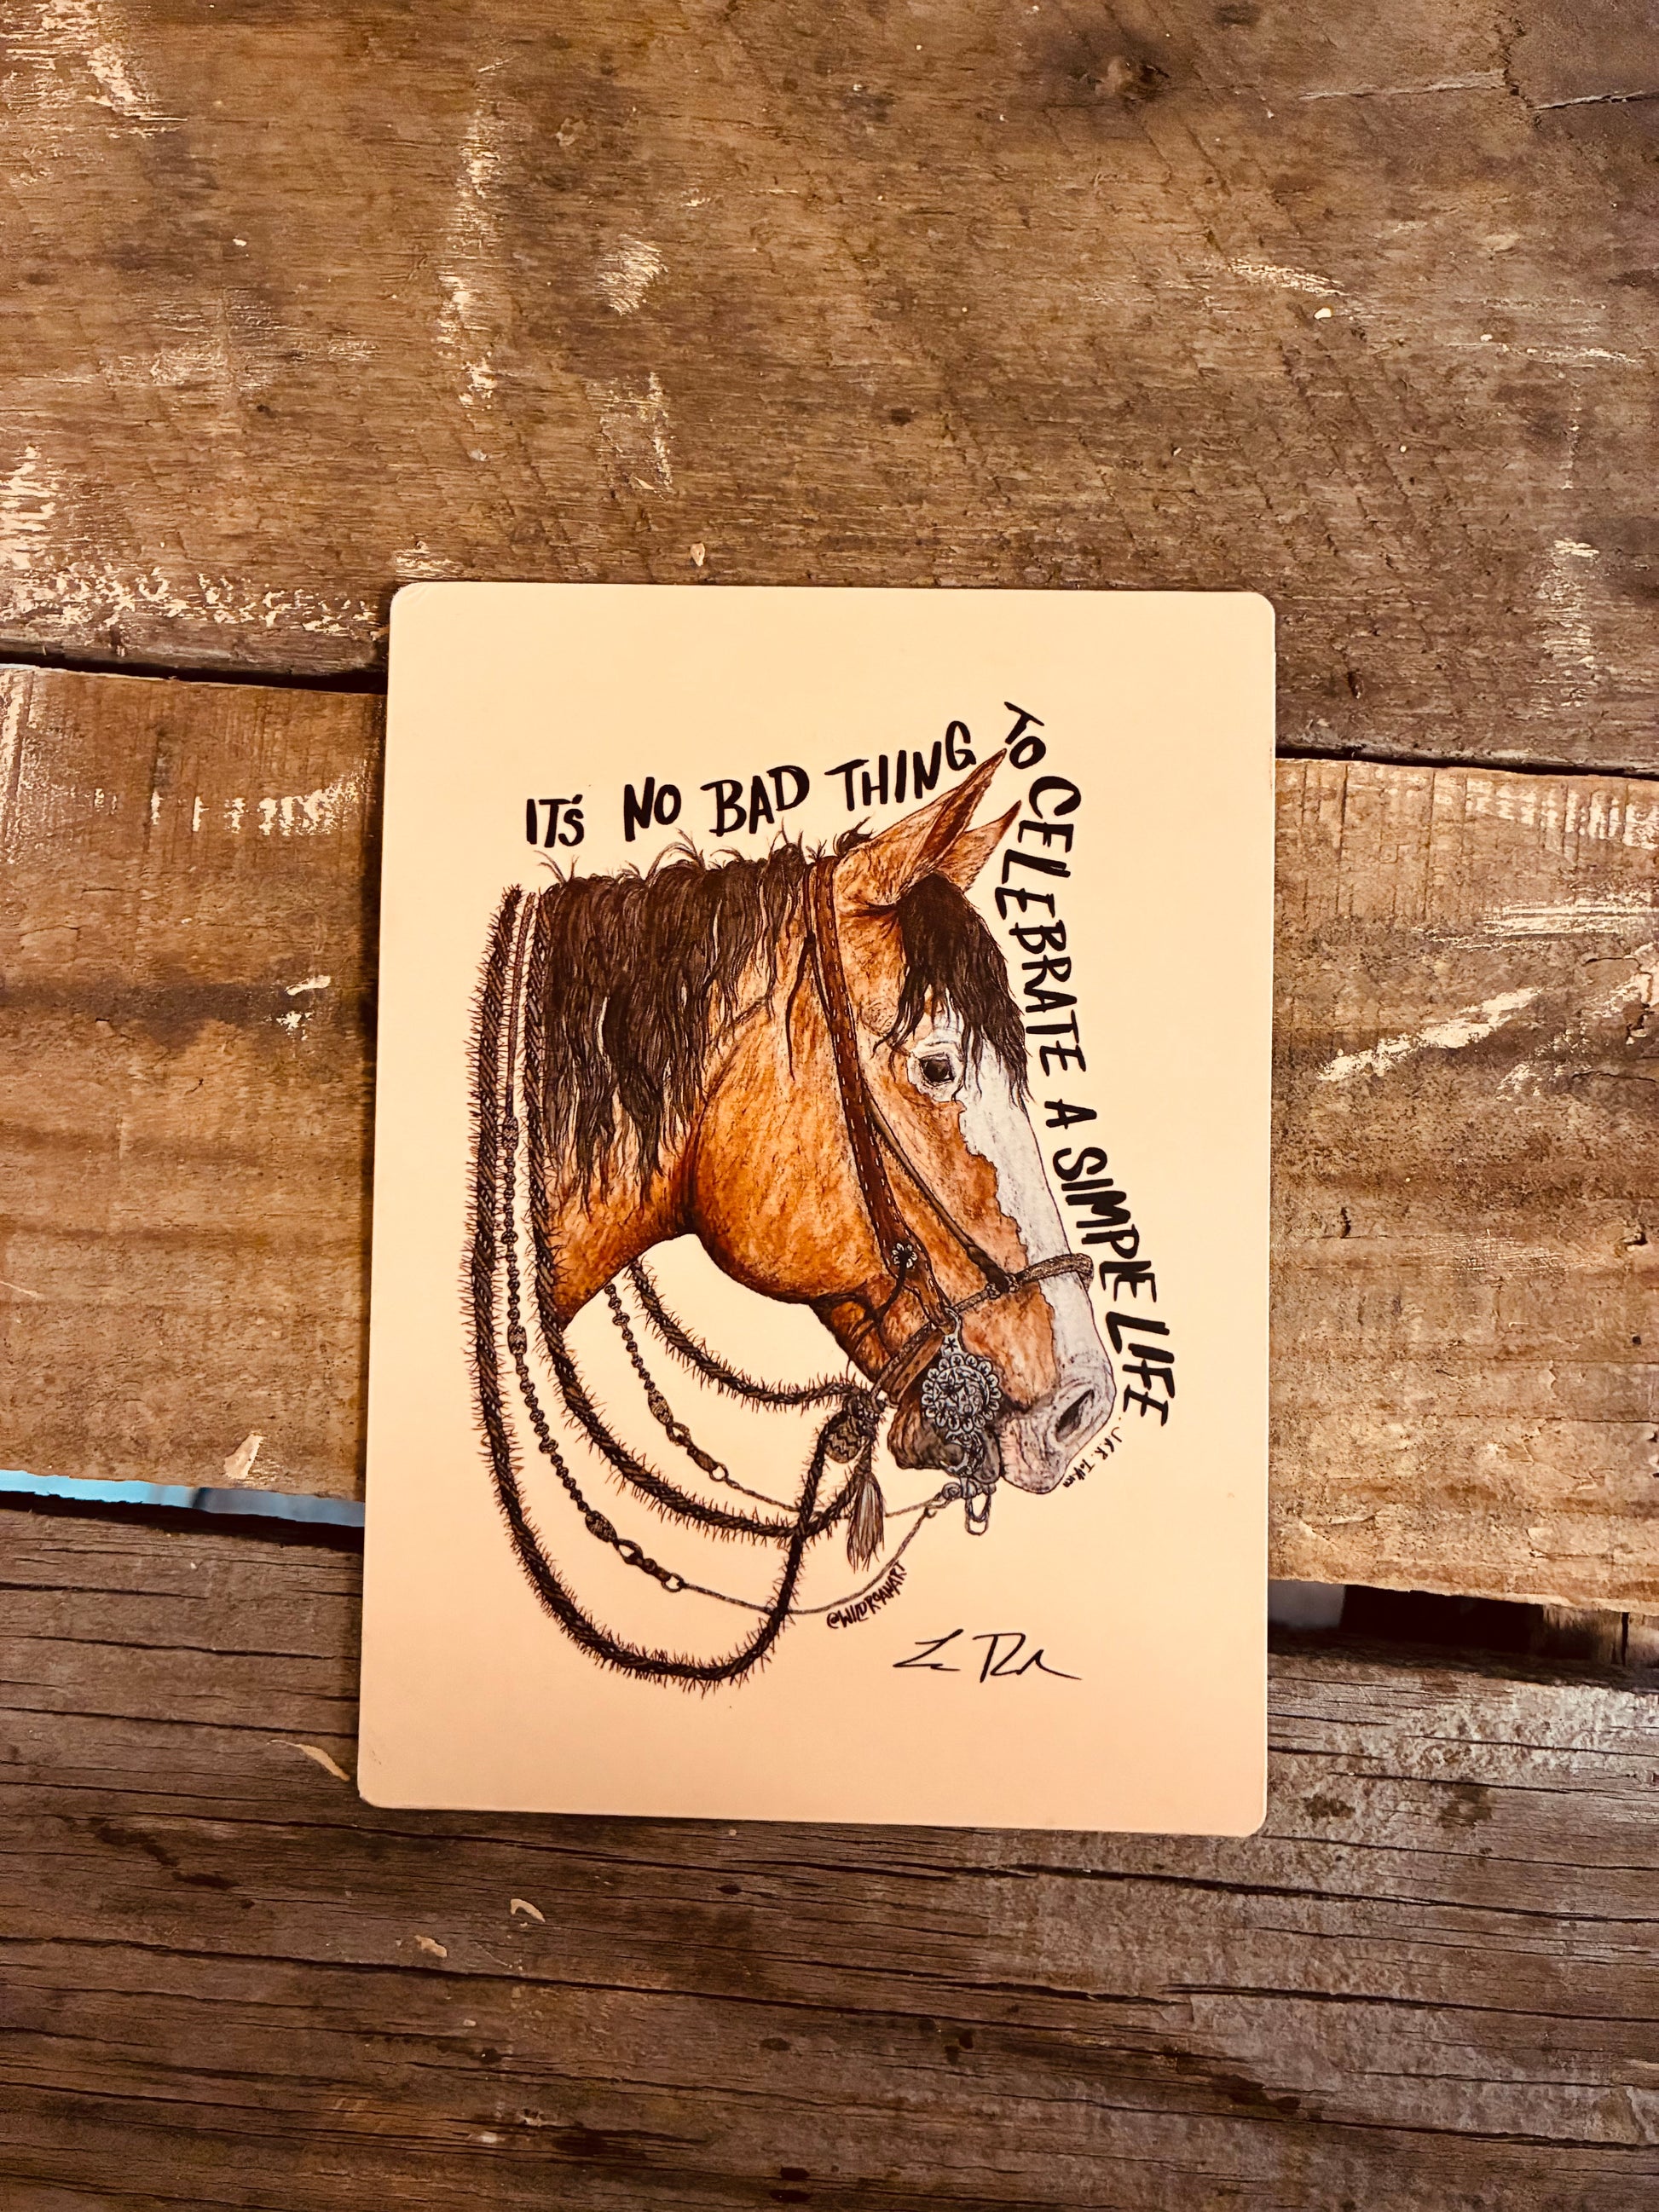 IT'S NO BAD THING TO CELEBRATE A SIMPLE LIFE
. J.R.R. Tolkien
@WILDROANART